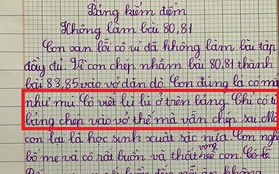 Bảng kiểm điểm
Không làm bài 80,81
Con xin lỗi cô vì đã không làm bài tập
đầy đủ. Tề con chép nhầm bài 80,81 thành
bài 83,85 vào vở dặn dò. Con đúng là có mắt
như mù. Cô viết lù lù ở trên bảng. Chỉ có
bảng chép vào vở thế mà vẫn chép sai. Mà
con lại là học sinh xuất sắc nữa. Con nghĩ
bố mẹ và cô hơi buồn và thất vọng con. Cô